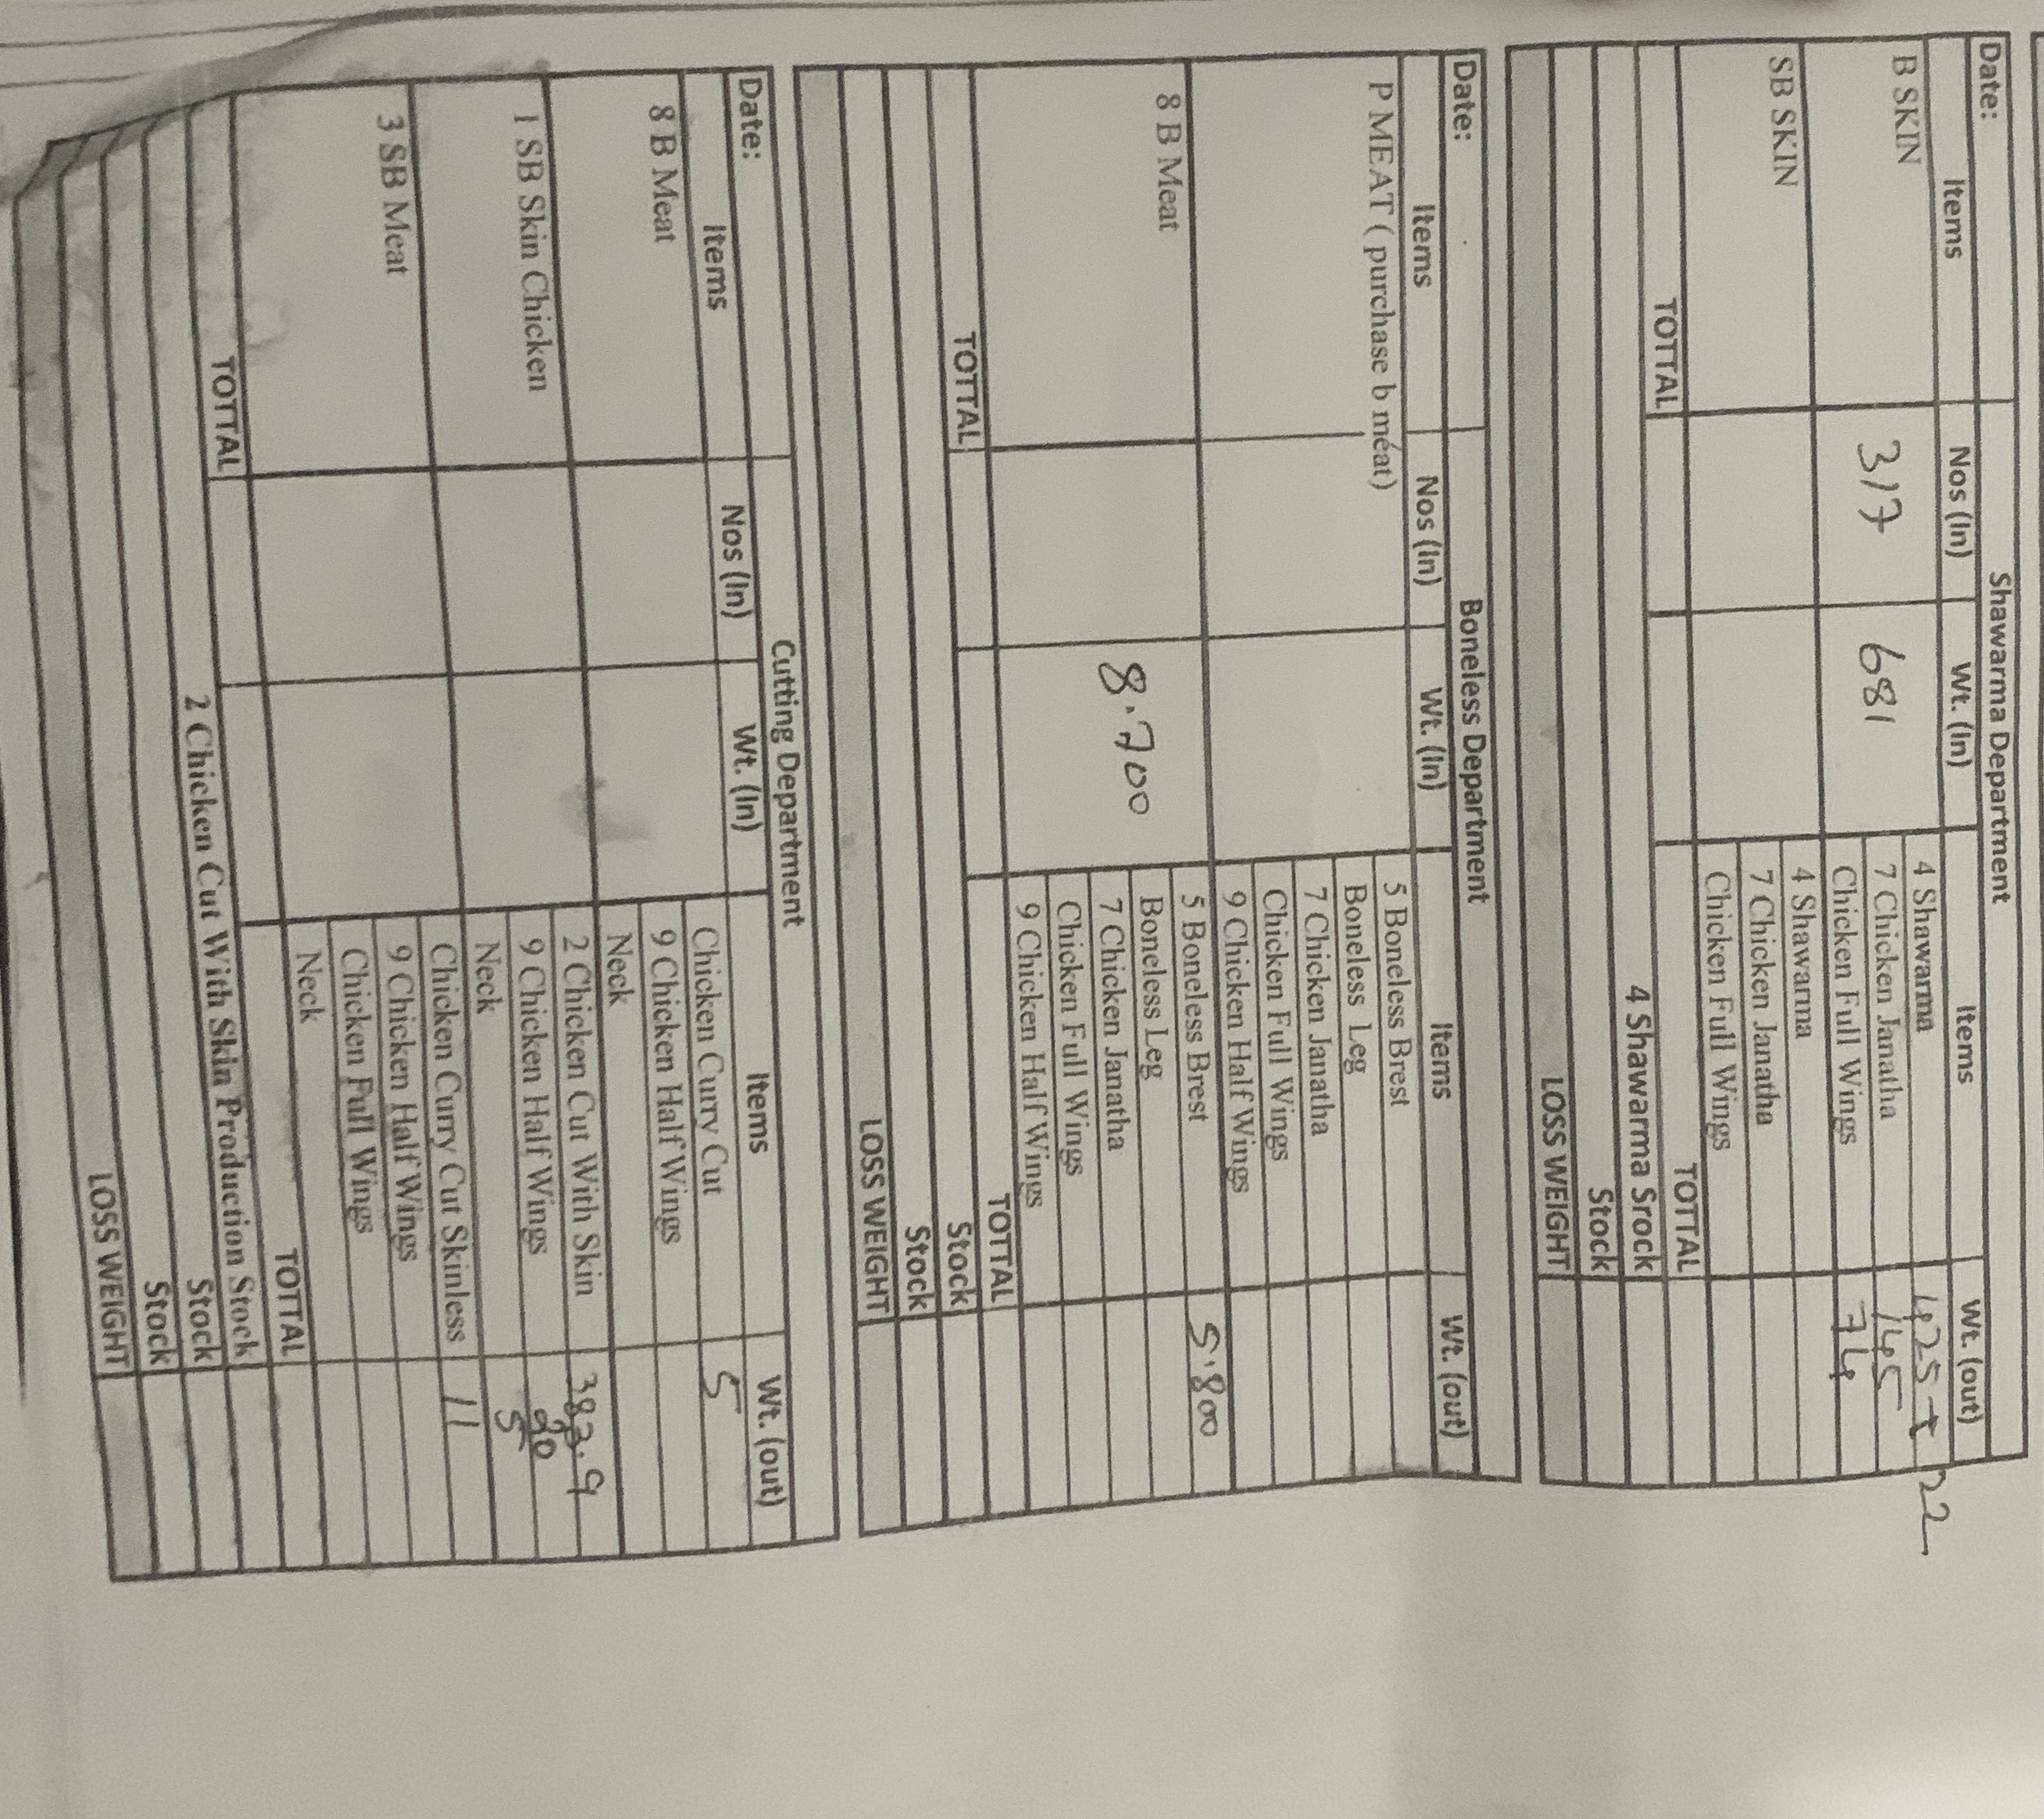 Date: Shawarma Department
Items Nos (In) Wt. (In) Items Wt. (out)
B SKIN 317 681 4 Shawarma 425 + 22
7 Chicken Janatha 145
Chicken Full Wings 74
SB SKIN 4 Shawarma
7 Chicken Janatha
Chicken Full Wings
TOTTAL TOTTAL
4 Shawarma Srock
Stock
LOSS WEIGHT
Date: Boneless Department
Items Nos (In) Wt. (In) Items Wt. (out)
P MEAT ( purchase b meat) 5 Boneless Brest
Boneless Leg
7 Chicken Janatha
Chicken Full Wings
9 Chicken Half Wings
8 B Meat 8.700 5 Boneless Brest 5.800
Boneless Leg
7 Chicken Janatha
Chicken Full Wings
9 Chicken Half Wings
TOTTAL TOTTAL
Stock
Stock
LOSS WEIGHT
Cutting Department
Date:
Items Nos (In) Wt. (In) Items Wt. (out)
8 B Meat Chicken Curry Cut 5
9 Chicken Half Wings
Neck
1 SB Skin Chicken 2 Chicken Cut With Skin 383.9
9 Chicken Half Wings 20
Neck 5
3 SB Meat Chicken Curry Cut Skinless 11
9 Chicken Half Wings
Chicken Full Wings
Neck
TOTTAL TOTTAL
2 Chicken Cut With Skin Production Stock
Stock
Stock
LOSS WEIGHT